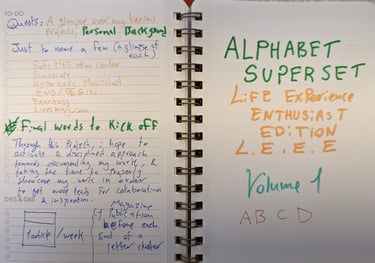 TO-DO
Quests: A glimpse over my Various
Projects/ Personal Background
Just to name a few (A glimpse of
each)
Safe MEDitation Center
Sonoscape
Hypnotic
END/BEGIN
Final words to Kick off
Through this Project, i hope to
activate a disciplined approach
towards documenting my work, &
taking the time to Properly
showcase my work in order
to get more leads for collaboration
& inspiration.
DIES & DAS
1 article / week
Magazine
Publication
before each
End of a
letter cluster
ALPHABET
SUPERSET
LiFE EXPerience
ENTHUSIAST
EDITION
L.E.E.E
Volume 1
A B C D